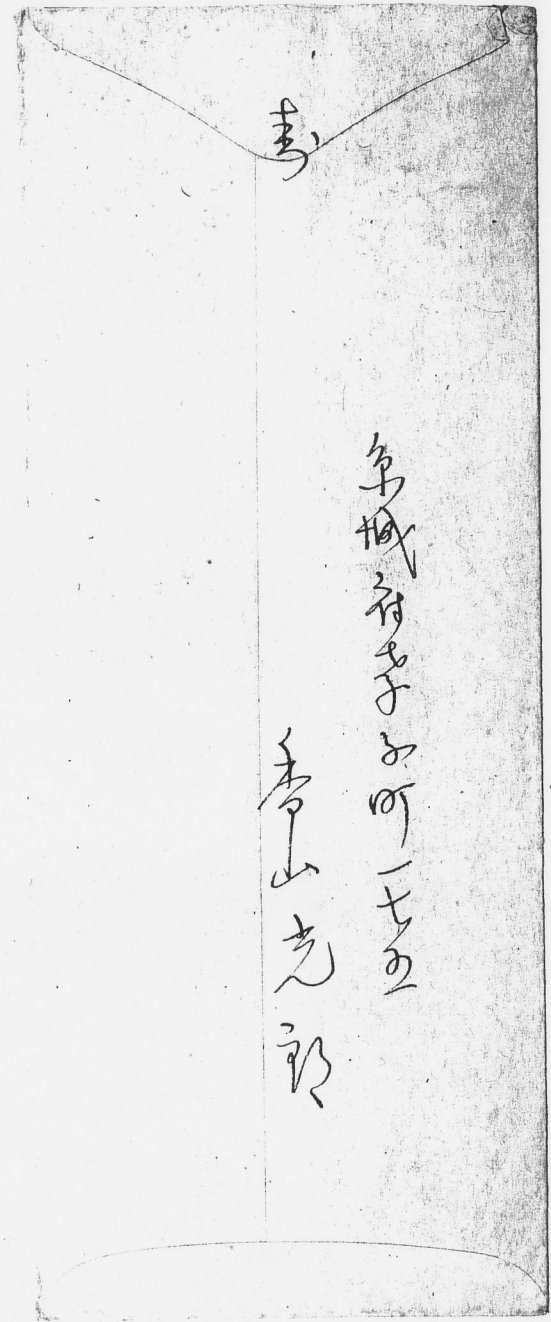 寿
京城府孝子町一七五
香山光郎